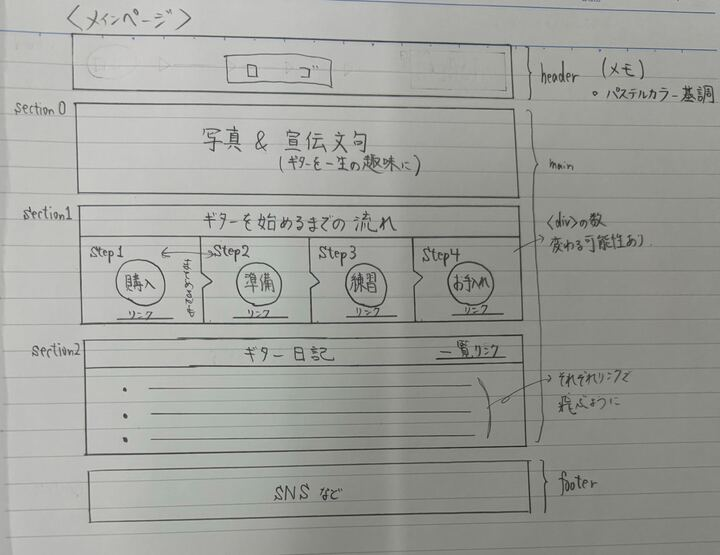 〈メインページ〉
ロゴ
header
(メモ)
・パステルカラー基調
section0
写真 & 宣伝文句
(ギターを一生の趣味に)
main
section1
ギターを始めるまでの流れ
<div>の数
変わる可能性あり
Step1
Step2
Step3
Step4
購入
まとめるかも
準備
練習
お手入れ
リンク
リンク
リンク
リンク
section2
ギター日記
一覧リンク
それぞれリンクで
飛ぶように
SNSなど
footer